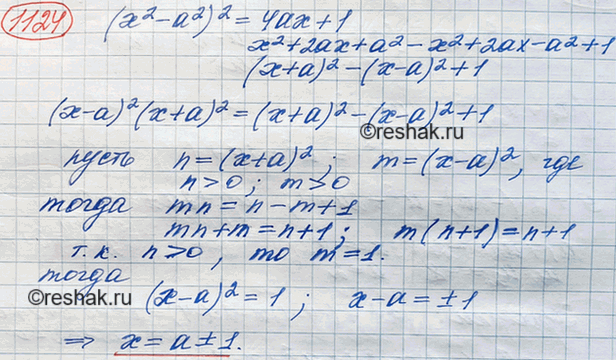 1124
(x²-a²)² = 4ax+1
x²+2ax+a²-x²+2ax-a²+1
(x+a)²-(x-a)²+1
(x-a)²(x+a)² = (x+a)²-(x-a)²+1
©reshak.ru
пусть n=(x+a)²; m=(x-a)², где
n>0; m≥0
тогда mn = n-m+1
mn+m = n+1; m(n+1)=n+1
т.к. n>0, то m=1.
тогда
©reshak.ru (x-a)²=1; x-a=±1
⇒ x=a±1.